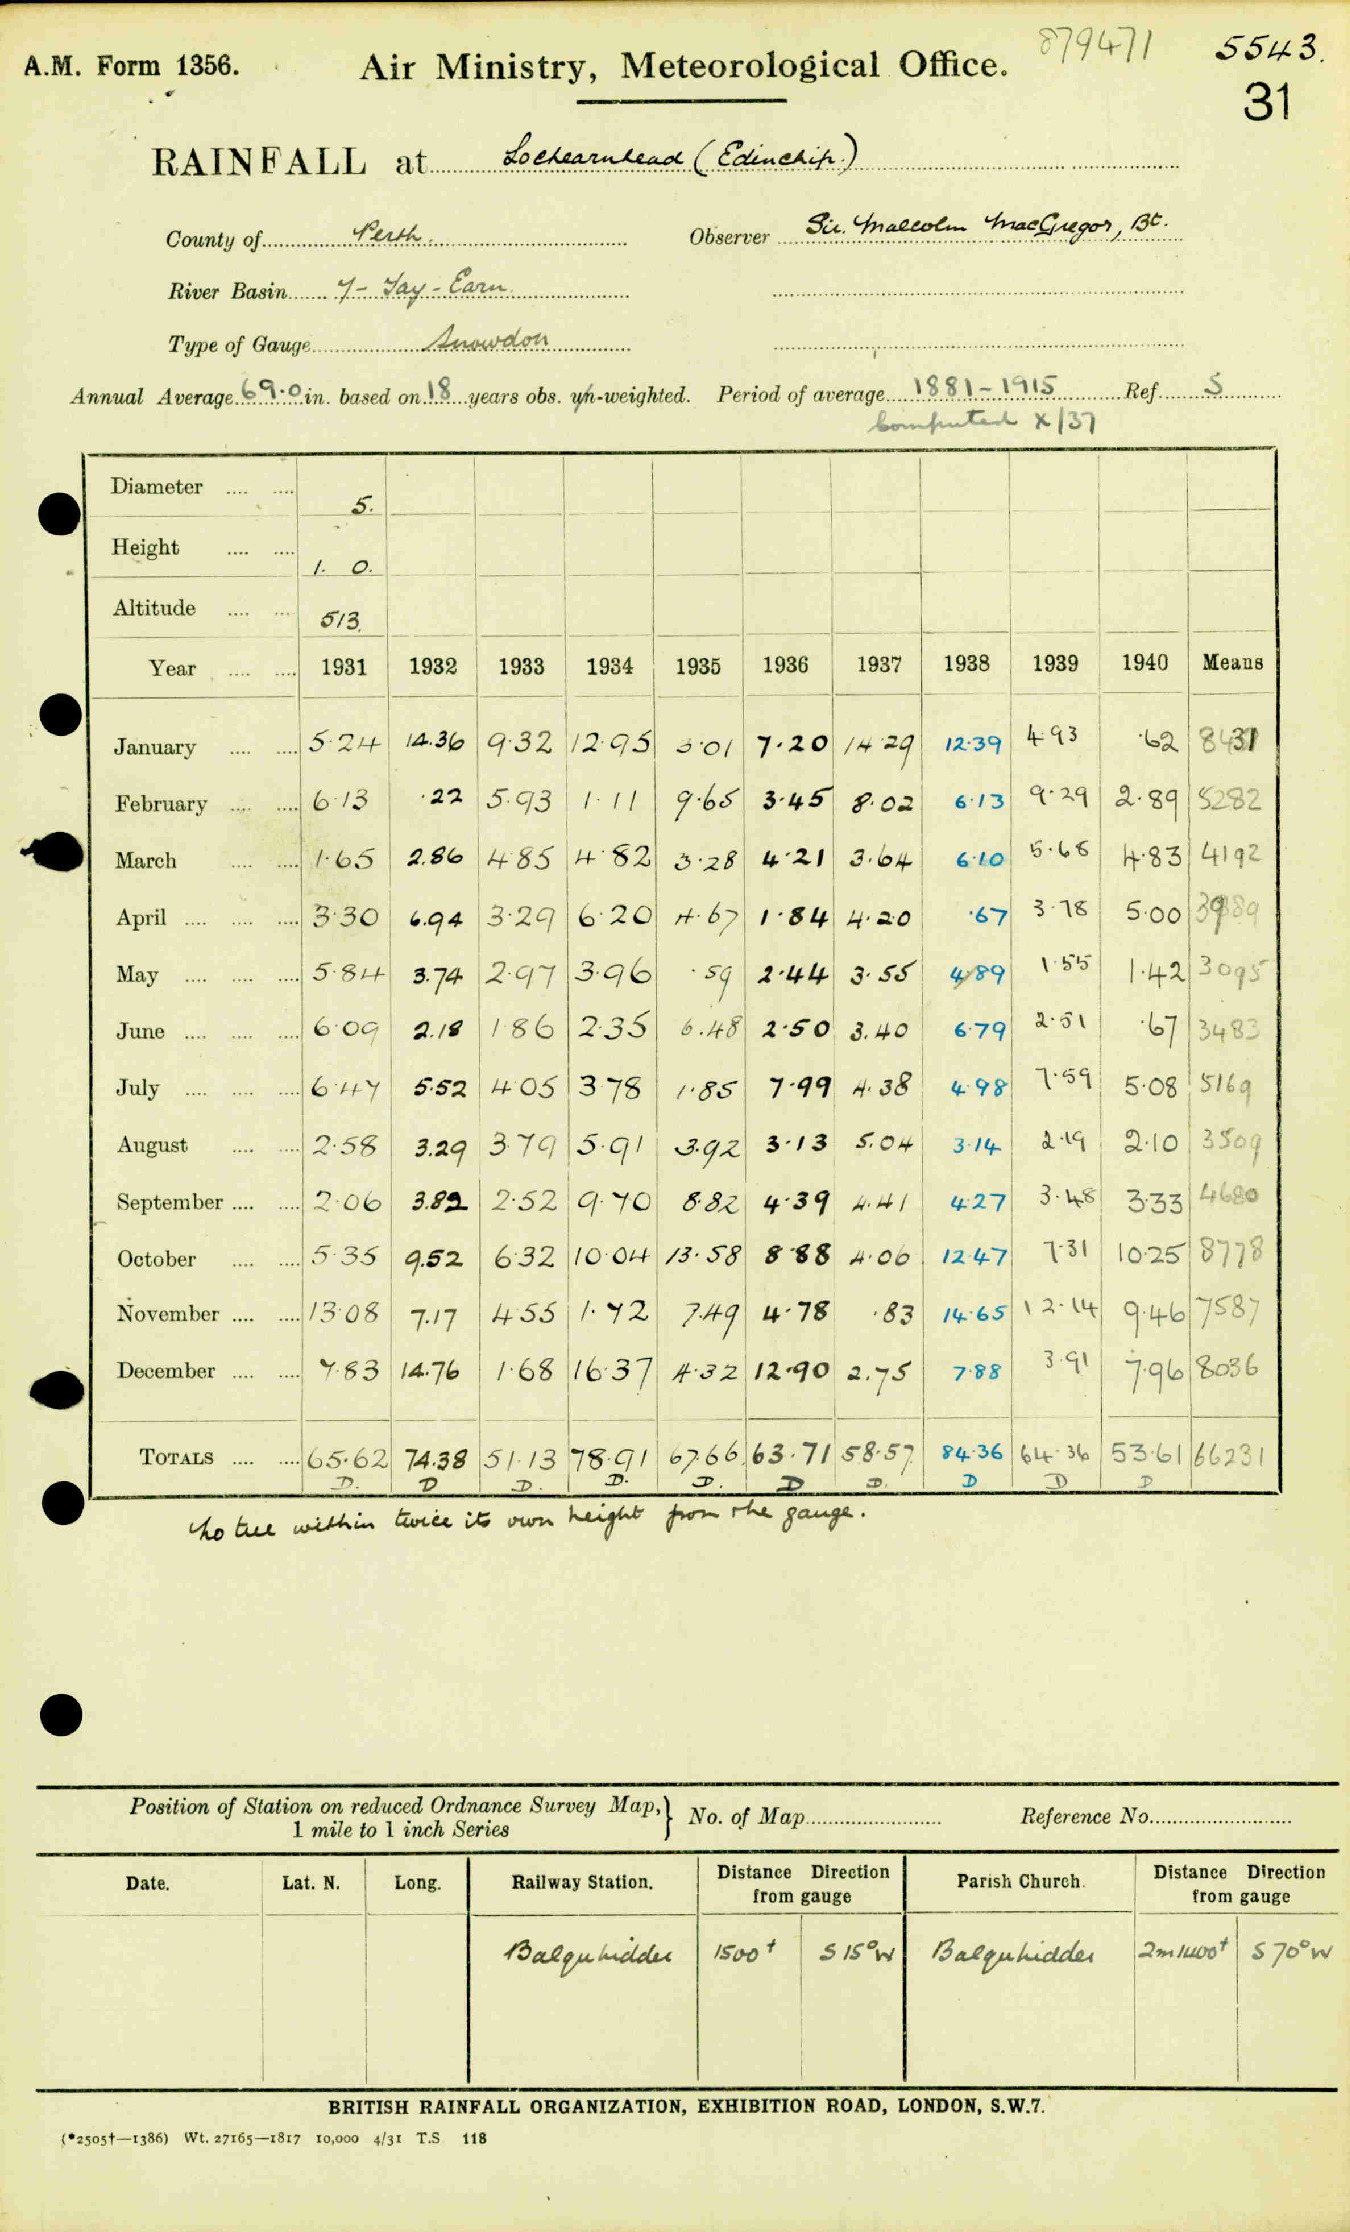 879471 5543.
A.M. Form 1356. Air Ministry, Meteorological Office.
31
RAINFALL at Lochearnhead (Edinchip.)
County of Perth. Observer Sir. Malcolm MacGregor, Bt.
River Basin 7 - Tay - Earn.
Type of Gauge Snowdon
Annual Average 69.0 in. based on 18 years obs. un-weighted. Period of average 1881-1915 Ref. S
Computed X/37
Diameter 5.
Height 1. 0.
Altitude 513.
Year 1931 1932 1933 1934 1935 1936 1937 1938 1939 1940 Means
January 5.24 14.36 9.32 12.95 3.01 7.20 14.29 12.39 4.93 .62 8431
February 6.13 .22 5.93 1.11 9.65 3.45 8.02 6.13 9.29 2.89 5282
March 1.65 2.86 4.85 4.82 3.28 4.21 3.64 6.10 5.68 4.83 4192
April 3.30 6.94 3.29 6.20 4.67 1.84 4.20 .67 3.78 5.00 3989
May 5.84 3.74 2.97 3.96 .59 2.44 3.55 4.89 1.55 1.42 3095
June 6.09 2.18 1.86 2.35 6.48 2.50 3.40 6.79 2.51 .67 3483
July 6.47 5.52 4.05 3.78 1.85 7.99 4.38 4.98 7.59 5.08 5169
August 2.58 3.29 3.79 5.91 3.92 3.13 5.04 3.14 2.19 2.10 3509
September 2.06 3.82 2.52 9.70 8.82 4.39 4.41 4.27 3.48 3.33 4680
October 5.35 9.52 6.32 10.04 13.58 8.88 4.06 12.47 7.31 10.25 8778
November 13.08 7.17 4.55 1.72 7.49 4.78 .83 14.65 12.14 9.46 7587
December 7.83 14.76 1.68 16.37 4.32 12.90 2.75 7.88 3.91 7.96 8036
TOTALS 65.62 74.38 51.13 78.91 67.66 63.71 58.57 84.36 64.36 53.61 66231
D. D D. D. D. D D. D D D
No tree within twice its own height from the gauge.
Position of Station on reduced Ordnance Survey Map, 1 mile to 1 inch Series } No. of Map Reference No.
Date. Lat. N. Long. Railway Station. Distance Direction from gauge Parish Church. Distance Direction from gauge
Balquhidder 1500† S 15° W Balquhidder 2m 1400† S 70° W
BRITISH RAINFALL ORGANIZATION, EXHIBITION ROAD, LONDON, S.W.7.
(*2505†—1386) Wt. 27165—1817 10,000 4/31 T.S 118